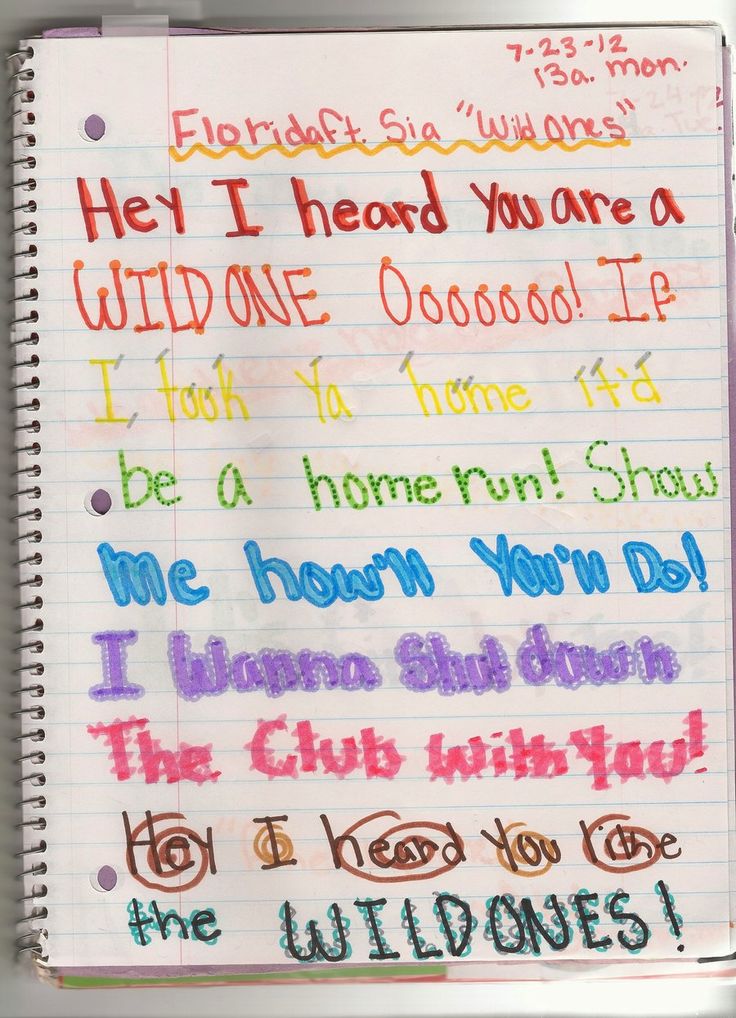 7-23-12
13a. mon.
Florida ft. Sia "Wild Ones"
Hey I heard You are a
WILD ONE Ooooooo! If
I took Ya home it'd
be a home run! Show
me how'll You'll Do!
I Wanna Shut down
The Club With You!
Hey I heard You lithe
the WILD ONES!